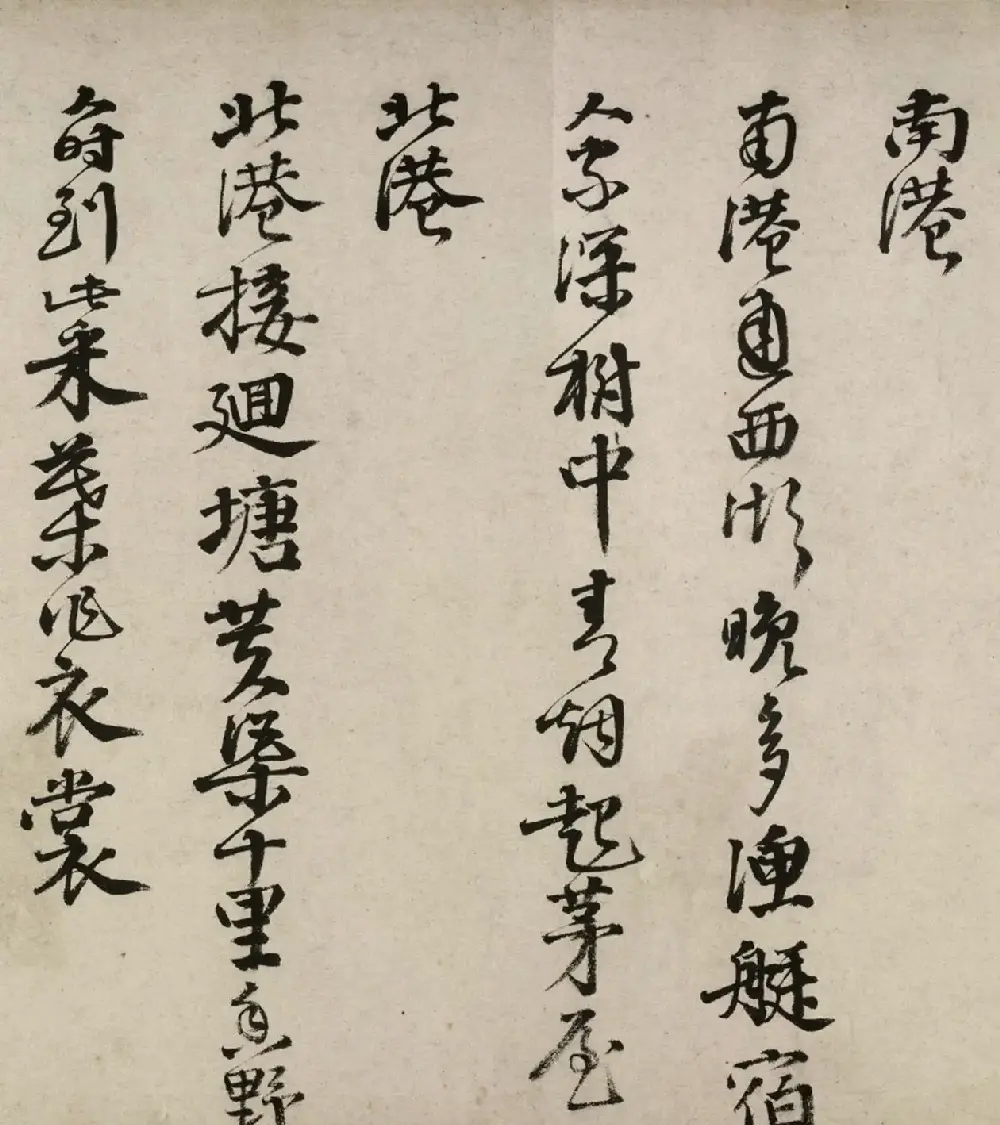 南港
南港通西湖晚多漁艇宿
人家深樹中青烟起茅屋
北港
北港接廻塘芙蕖十里香野
人時到此采葉作衣裳